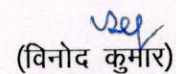 (विनोद कुमार)